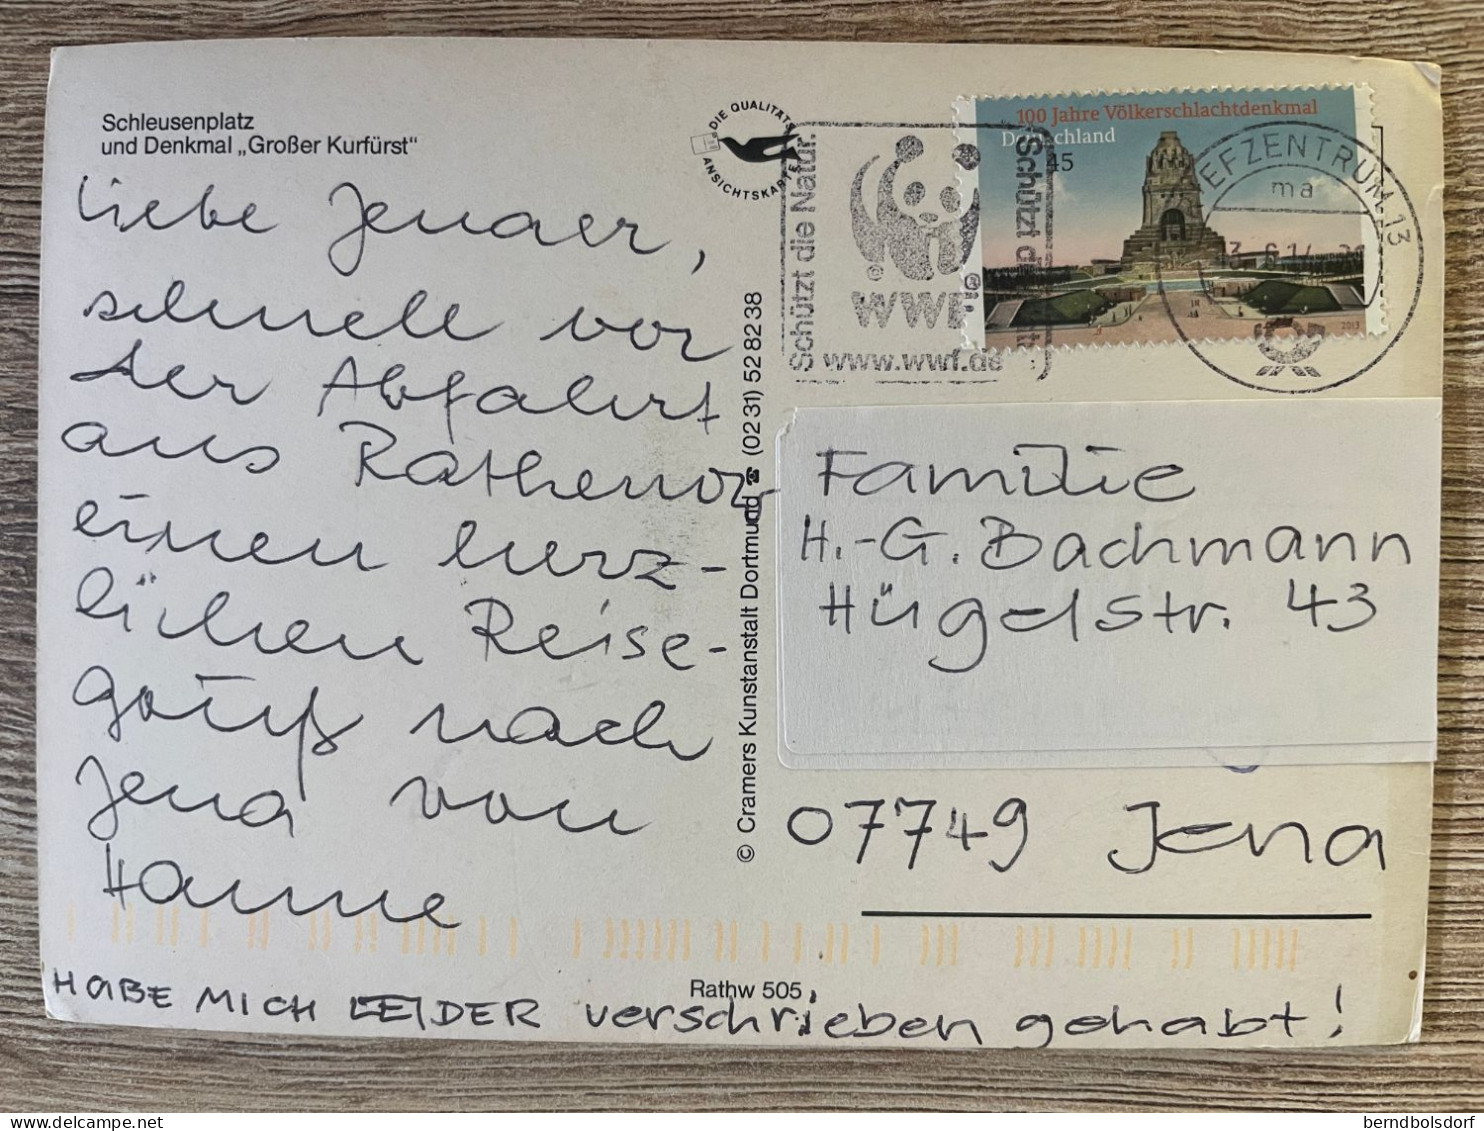 Schleusenplatz
und Denkmal „Großer Kurfürst“
Liebe Jenaer,
schnell vor
der Abfahrt
aus Rathenow
einen herz-
lichen Reise-
gruß nach
Jena von
Hanne
HABE MICH LEIDER verschrieben gehabt!
DIE QUALITÄTS
ANSICHTSKARTE
© Cramers Kunstanstalt Dortmund ☎ (02 31) 52 82 38
Rathw 505
Schützt die Natur.
©
WWF
®
www.wwf.de
Schützt die
100 Jahre Völkerschlachtdenkmal
Deutschland
45
2013
BRIEFZENTRUM 13
ma
Familie
H.-G. Bachmann
Hügelstr. 43
07749 Jena
berndbolsdorf